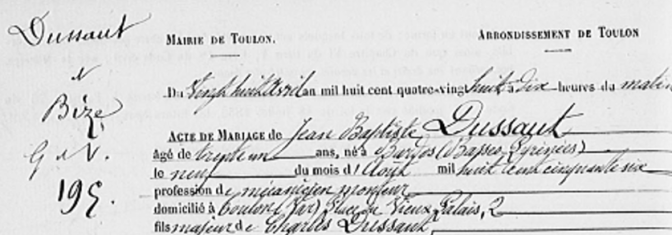 Dussaut
MAIRIE DE TOULON.
ARRONDISSEMENT DE TOULON
&
Bize
G. N.
195.
Du Vingt huit Avril an mil huit cent quatre-vingt huit à Dix heures du matin
ACTE DE MARIAGE de Jean Baptiste Dussaut
âgé de trente un ans, né à Bardos (Basses Pyrénées)
le neuf du mois d'Août mil huit cent cinquante six
profession de mécanicien
domicilié à Toulon (Var) Place du Vieux Palais, 2
fils majeur de Charles Dussaut,